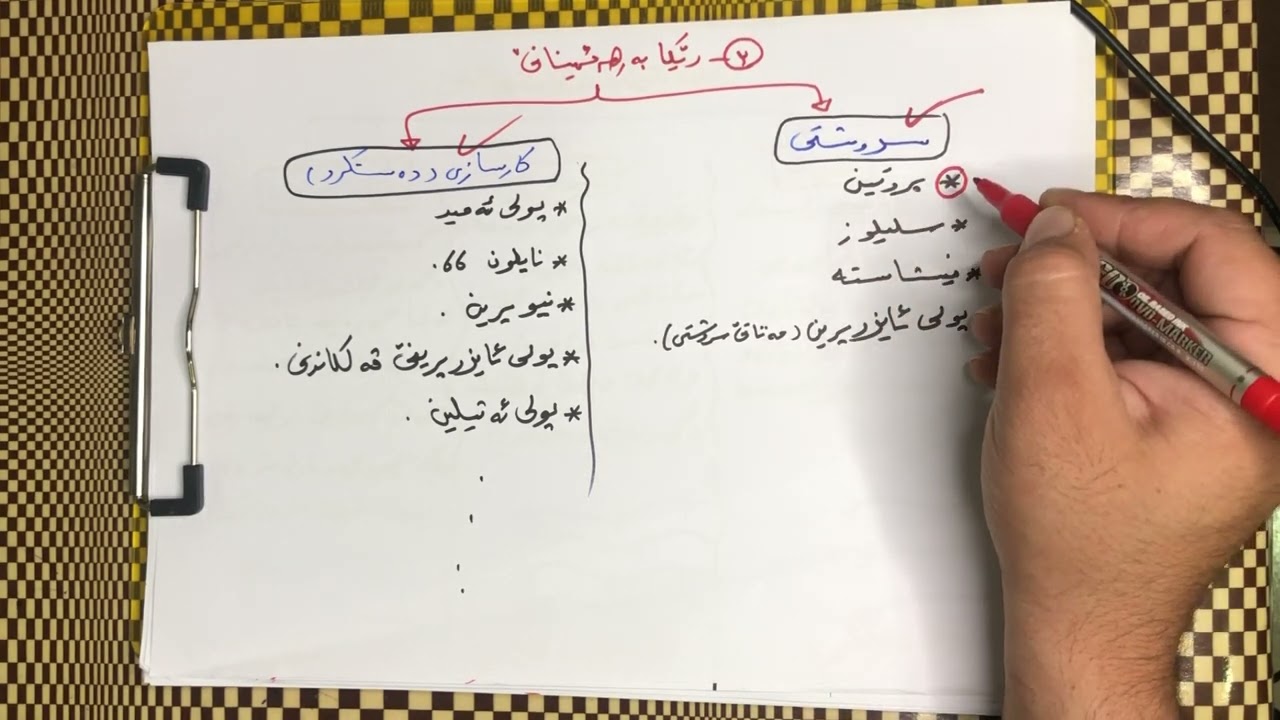 ٢- رێگا بەرهەمهێنانی
سروشتی
* پرۆتین
* سلیلوز
* نیشاستە
پولی ئایزوپرین (مەتاتی سروشتی).
کارسازی (دەستکرد)
* پولی ئەمید
* نایلون 66.
* نیوپرین .
* پولی ئایزوپرینی ڤەلکاندنی .
* پولی ئەتیلین .
MARKER